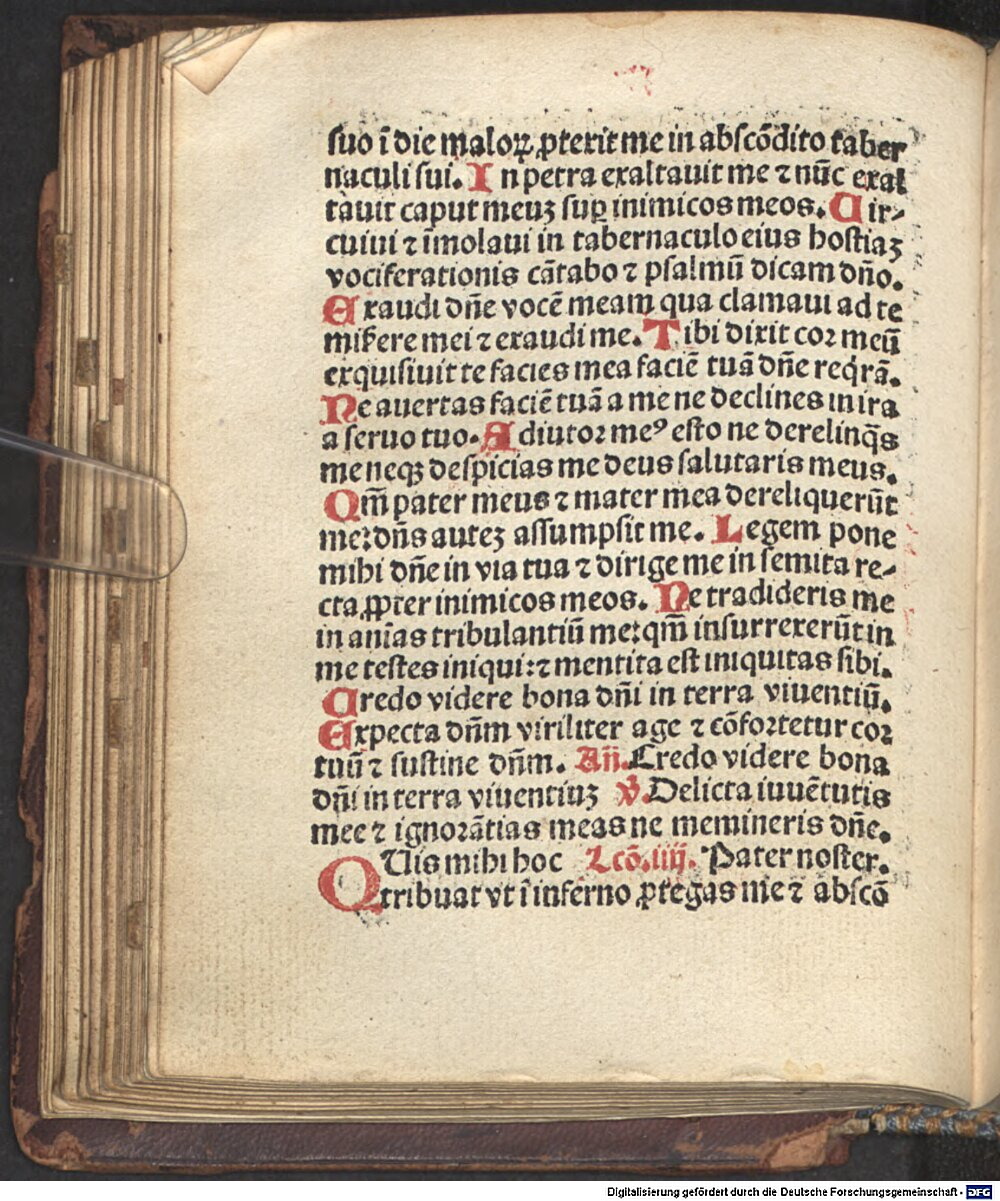 suo ī die maloꝝ ꝓterit me in abscōdito taber
naculi sui. In petra exaltauit me ⁊ nūc exal
tauit caput meuꝫ suꝑ inimicos meos. Cir⸗
cuiui ⁊ īmolaui in tabernaculo eius hostiaꝫ
vociferationis cātabo ⁊ psalmū dicam dn̄o.
Exaudi dn̄e vocē meam qua clamaui ad te
mis̄ere mei ⁊ exaudi me. Tibi dixit coꝛ meū
exquisiuit te facies mea faciē tuā dn̄e reqͥrā.
Ne auertas faciē tuā a me ne declines in ira
a seruo tuo. Adiutoꝛ meꝰ esto ne derelinqͣs
me neqꝫ despicias me deus salutaris meus.
Qm̄ pater meus ⁊ mater mea dereliquerūt
me: dn̄s auteꝫ assumpsit me. Legem pone
mihi dn̄e in via tua ⁊ dirige me in semita re⸗
cta ꝓpter inimicos meos. Ne tradideris me
in anīas tribulantiū me: qm̄ insurrexerūt in
me testes iniqui: ⁊ mentita est iniquitas sibi.
Credo videre bona dn̄i in terra viuentiū.
Expecta dn̄m viriliter age ⁊ cōfoꝛtetur coꝛ
tuū ⁊ sustine dn̄m. Añ. Credo videre bona
dn̄i in terra viuentiuꝫ ℣. Delicta iuuētutis
mee ⁊ ignoꝛātias meas ne memineris dn̄e.
QUis mihi hoc Lcō. iiij. Pater noster.
tribuat vt ī inferno ꝓtegas me ⁊ abscō
Digitalisierung gefördert durch die Deutsche Forschungsgemeinschaft - DFG